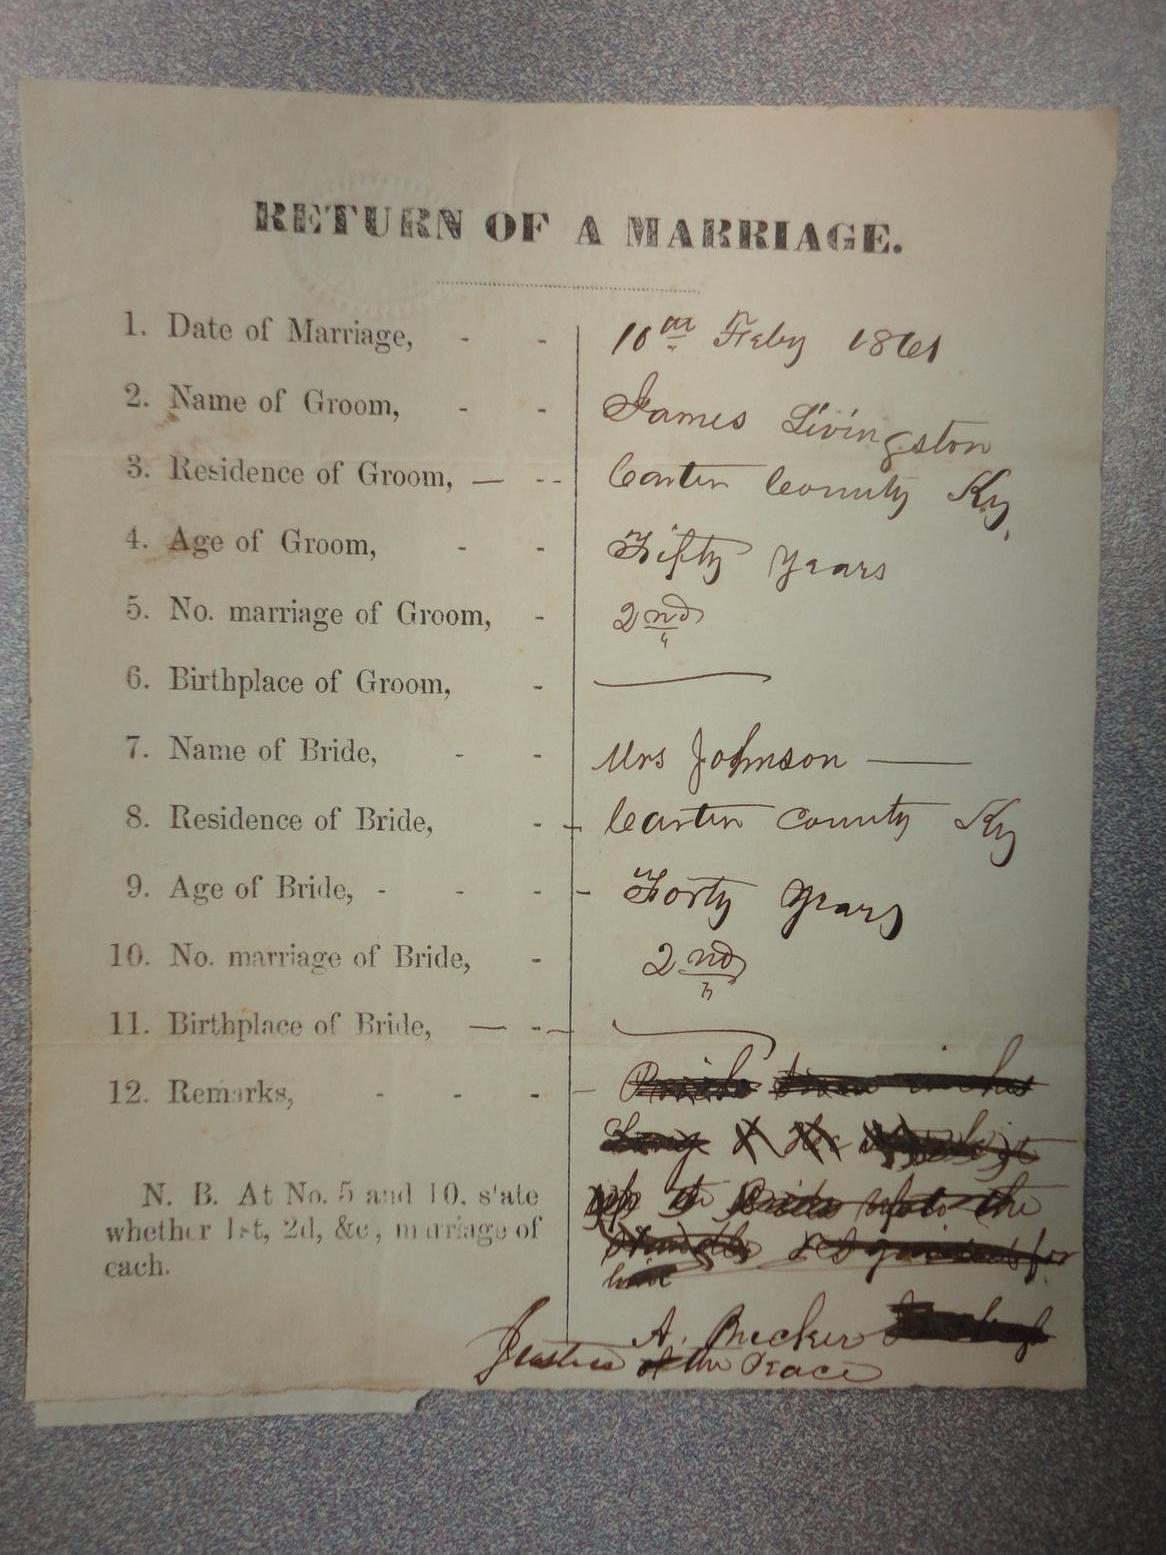 RETURN OF A MARRIAGE.
1. Date of Marriage, - - 10th Feby 1861
2. Name of Groom, - - James Livingston
3. Residence of Groom, — - - Carter County Ky,
4. Age of Groom, - - Fifty Years
5. No. marriage of Groom, - 2nd
6. Birthplace of Groom, - —
7. Name of Bride, - - Mrs Johnson —
8. Residence of Bride, - - Carter County Ky
9. Age of Bride, - - - - Forty Years
10. No. marriage of Bride, - 2nd
11. Birthplace of Bride, — - - —
12. Remarks, - - - -
N. B. At No. 5 and 10, state
whether 1st, 2d, &c., marriage of
each.
the Bride the
for
A. Bucker
Justice of the Peace